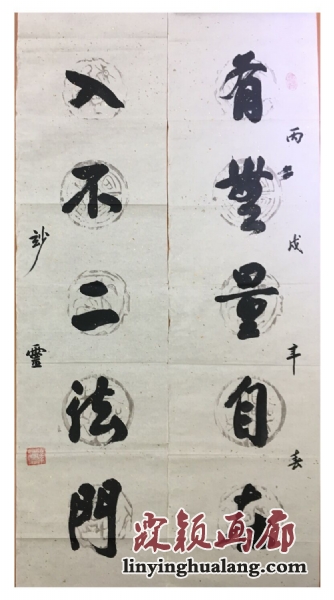 有無量自在
丙戌年春
入不二法門
玅靈
霖颖画廊
linyinghualang.com